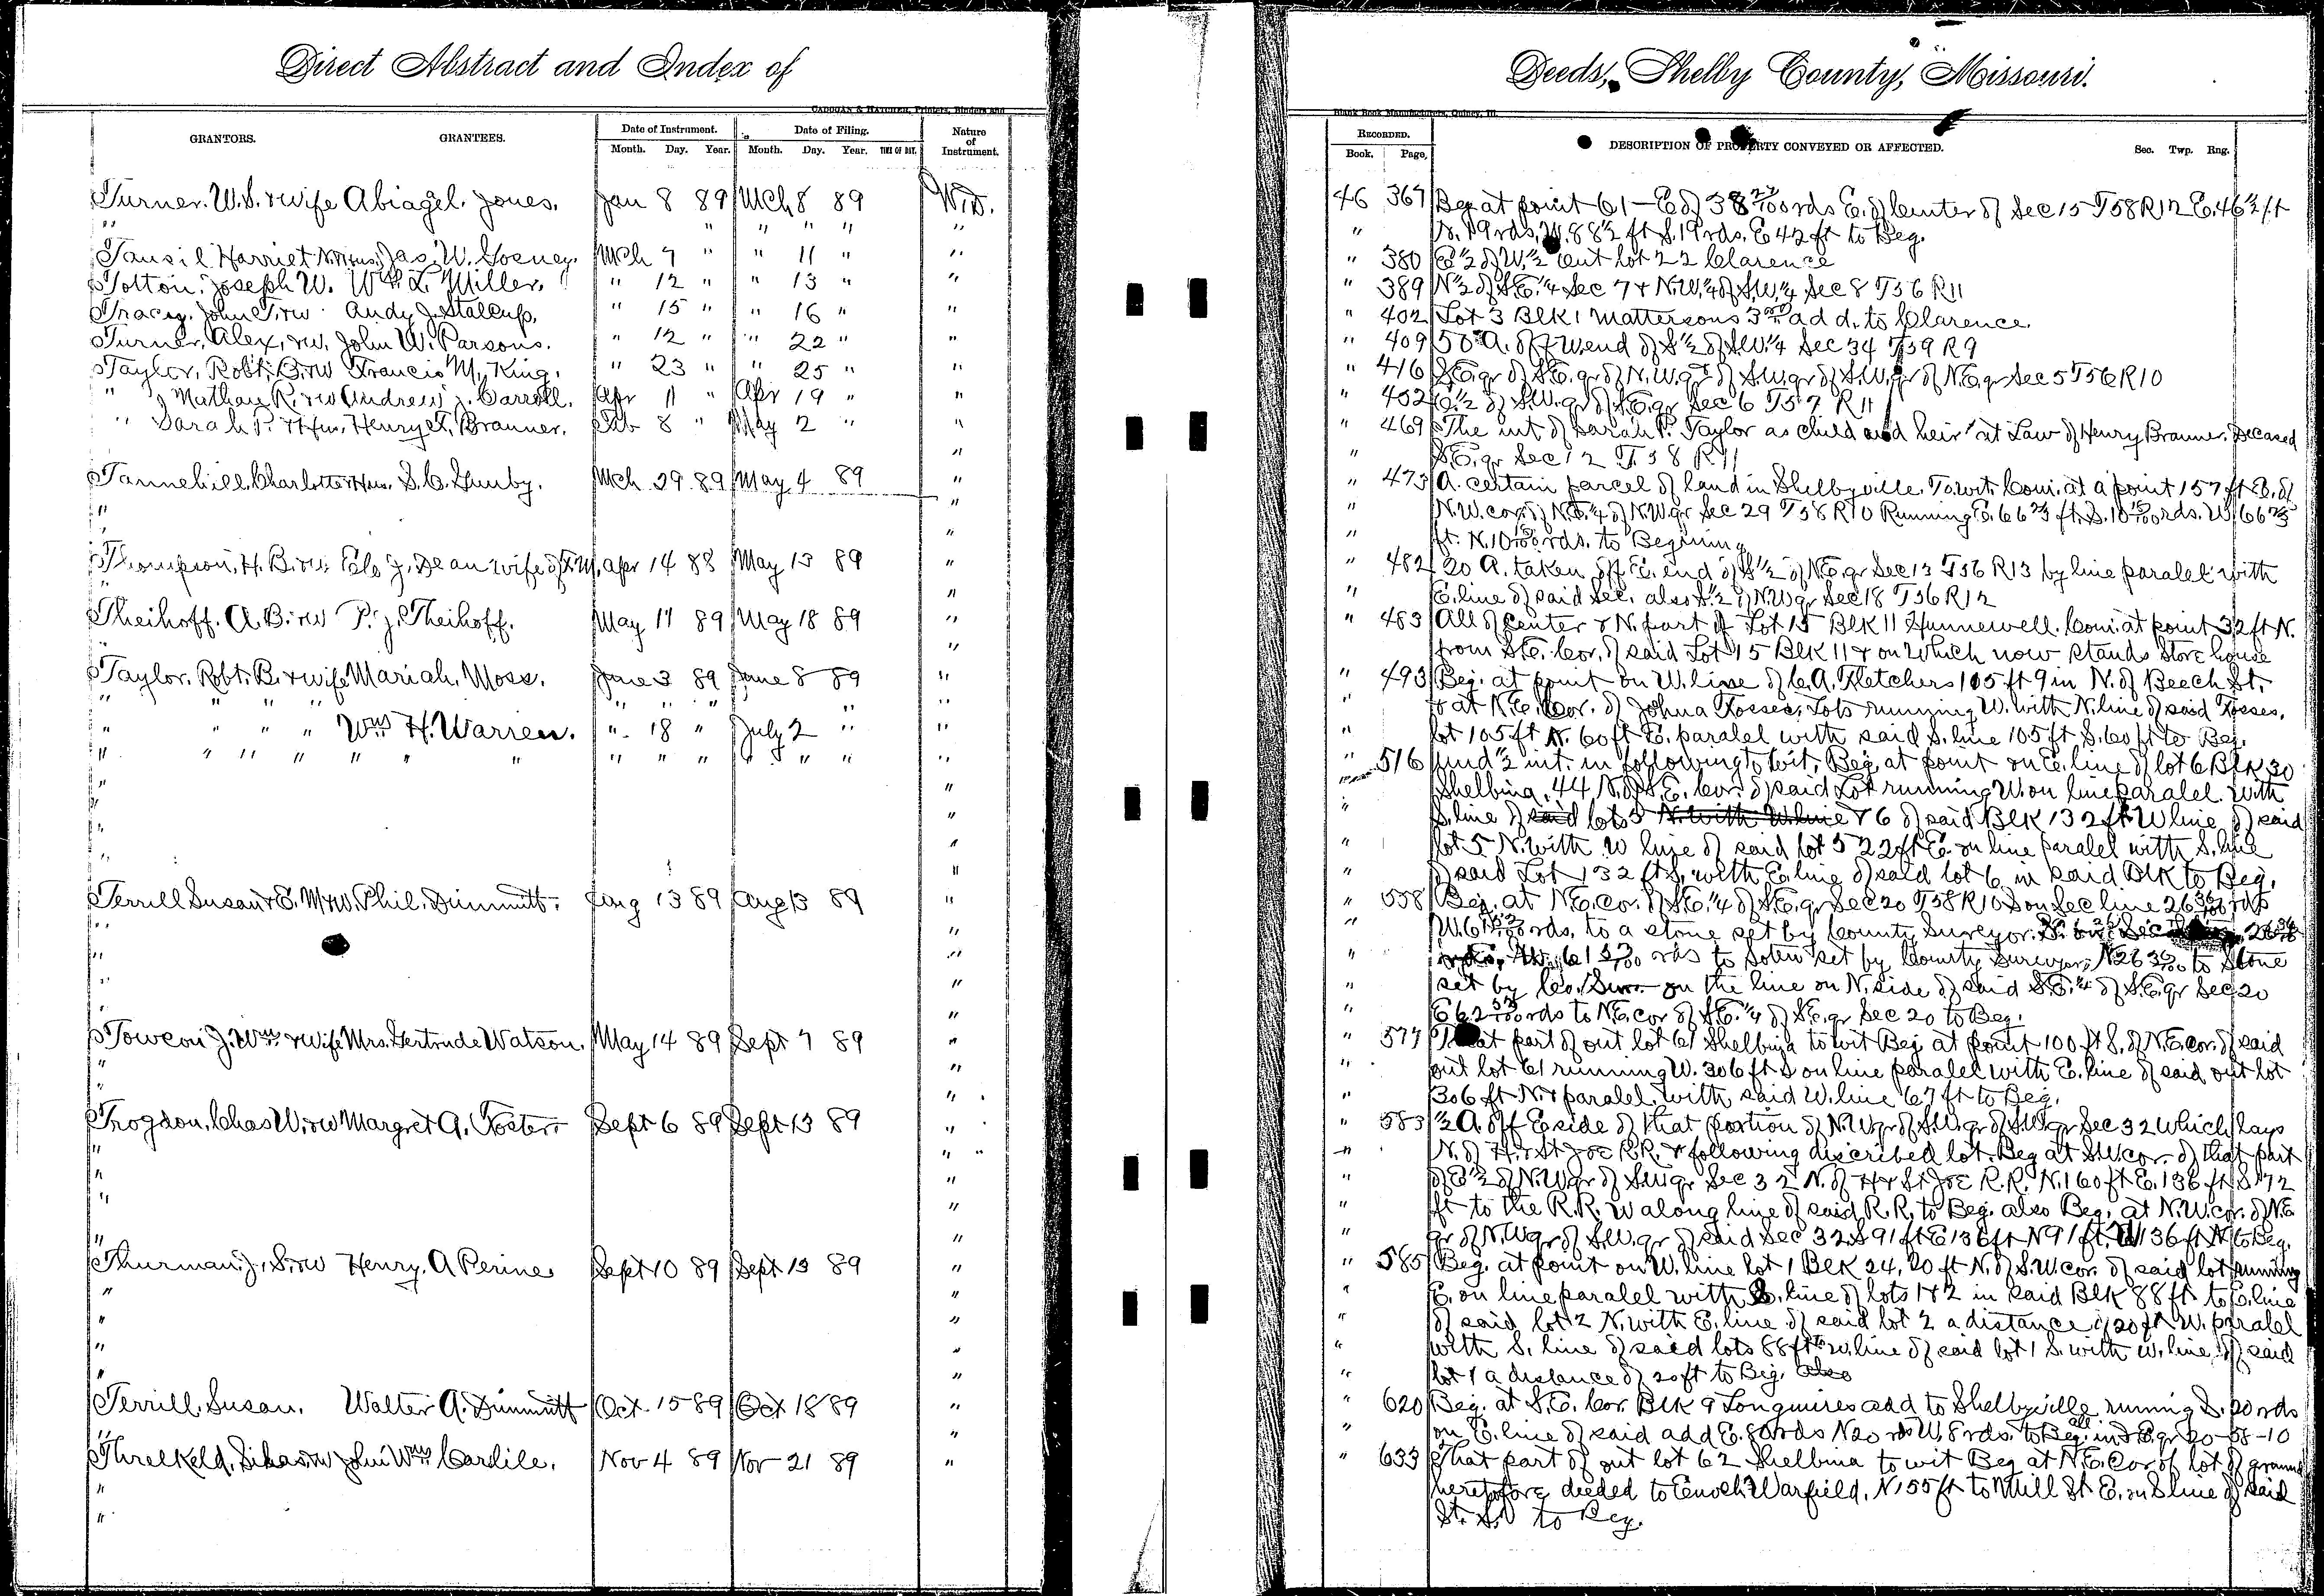 Direct Abstract and Index of
CADOGAN & HATCHER, Printers, Binders and
GRANTORS. GRANTEES. Date of Instrument. Date of Filing. Nature of Instrument.
Month. Day. Year. Month. Day. Year. TIME OF DAY.
Turner. W.S. & wife Abiagel. Jones. Jan 8 89 Mch 8 89 W.D.
" " " " " " "
Tansil Harriet N. & Hus. Jas. W. Gosney. Mch 7 " " 11 " "
Totton. Joseph W. Wm L. Miller. " 12 " " 13 " "
Tracy. John T. & w Andy J. Stallup. " 15 " " 16 " "
Turner, Alex, & w. John W. Parsons. " 12 " " 22 " "
Taylor, Robt. B. & w Francis M. King. " 23 " " 25 " "
" Nathan R. & w Andrew J. Carroll. Apr 11 " Apr 19 " "
" Sarah P. & Hus. Henry T. Branner. Feb 8 " May 2 " "
Tannehill. Charlotte & Hus. S.C. Gunby. Mch 29 89 May 4 89 "
Thompson, H. B. & w. J. Dean wife of T.M. Apr 14 88 May 13 89 "
Theihoff. A. B. & w P. J. Theihoff. May 17 89 May 18 89 "
Taylor. Robt. B. & wife Mariah. Moss. June 3 89 June 8 89 "
" " " " Wm H. Warren. " 18 " July 2 " "
" " " " " " " " " " " " "
Terrill Susan & E. M & w. Phil. Dimmitt. Aug 13 89 Aug 13 89 "
Towson J. Wm & wife Mrs. Gertrude Watson. May 14 89 Sept 7 89 "
Trogdon, Chas W. & w Margret A. Foster. Sept 6 89 Sept 13 89 "
Thurman. J. S. & w Henry. A Perine Sept 10 89 Sept 13 89 "
Terrill. Susan. Walter A. Dimmitt Oct 15 89 Oct 18 89 "
Threlkeld. & w John Wm Carlile. Nov 4 89 Nov 21 89 "
Deeds, Shelby County, Missouri.
Blank Book Manufacturers, Quincy, Ill.
RECORDED. DESCRIPTION OF PROPERTY CONVEYED OR AFFECTED. Sec. Twp. Rng.
Book. Page,
46 367 Beg at point 61 — E of 38 rds E. of Center of Sec 15 T58 R12 E. 46½ ft
" N. 19 rds, W. 88½ ft S. 19 rds. E 42 ft to Beg.
" 380 E½ of W.½ Out lot 22 Clarence
" 389 N½ of S.E.¼ Sec 7 & N.W.¼ of S.W.¼ Sec 8 T56 R11
" 402 Lot 3 Blk 1 Mattersons 3rd add. to Clarence.
" 409 50 A. off W. end of S½ of S.W.¼ Sec 34 T59 R9
" 416 S.E. qr of S.E. qr of N.W. qr & of S.W. qr of S.W. qr of N.E. qr Sec 5 T56 R10
" 452 E.½ of S.W. qr of S.E. qr Sec 6 T57 R11
" 469 The int of Sarah P. Taylor as child and heir at Law of Henry Branner. Deceased
" S.E. qr Sec 12 T58 R11
" 473 A. certain parcel of land in Shelbyville. To wit. Com. at a point 157 ft E. of
" N.W. cor. of N.E.¼ of N.W. qr Sec 29 T58 R10 Running E. 66⅔ ft. S. 10 rds. W. 66⅔
" ft. N. 10 rds. to Begining
" 482 20 A. taken off E. end of S½ of N.E. qr Sec 13 T56 R13 by line paralel with
" E. line of said Sec. also S.½ of N.W. qr Sec 18 T56 R12
" 483 All of center & N. part of Lot 15 Blk 11 Hunnewell. Com. at point 32 ft N.
" from S.E. Cor. of said Lot 15 Blk 11 & on which now stands Store house
" 493 Beg. at point on W. line of C. A. Fletchers 105 ft 9 in N. of Beech St.
" & at N.E. Cor. of Johna Fosses, Lots running W. with N. line of said Fosses.
" lot 105 ft N. 60 ft E. paralel with said S. line 105 ft S. 60 ft to Beg.
" 516 und ½ int. in following to wit, Beg. at point on E. line of lot 6 Blk 30
" Shelbina, 44 N. of S.E. Cor. of said Lot running W. on line paralel with
" S. line of said lots 5 N. with W. line & 6 of said Blk 132 ft W line of said
" lot 5 N. with W line of said lot 5 22 ft E. on line paralel with S. line
" of said Lot 132 ft S. with E. line of said lot 6 in said Blk to Beg.
" 558 Beg. at N.E. cor. of S.E.¼ of S.E. qr Sec 20 T58 R10 S on Sec line 26 36/100 rds
" W. 61 rds. to a stone set by County Surveyor.
" W. 61 rds to set by County Surveyor, N 26 36/100 to Stone
" set by Co. Surr. on the line on N. side of said S.E.¼ of S.E. qr Sec 20
" E 62 rds to N.E. cor of S.E.¼ of S.E. qr Sec 20 to Beg.
" 577 That part of out lot 61 Shelbina to wit Beg at point 100 ft S. of N.E. cor. of said
" out lot 61 running W. 306 ft S on line paralel with E. line of said out lot
" 306 ft N. & paralel with said W. line 67 ft to Beg.
" 583 ½ A. off E side of that portion of N.W. qr of S.W. qr of S.W. qr Sec 32 which lays
" N. of H. & St Joe R.R. & following discribed lot. Beg at S.W. cor. of that part
" of E½ of N.W. qr of S.W. qr Sec 32 N. of H & St Joe R.R. N. 160 ft E. 136 ft S 172
" ft to the R.R. W along line of said R.R. to Beg. also Beg. at N.W. cor. of N.E
" qr of N.W. qr of S.W. qr of said Sec 32 S 91 ft E 136 ft N 91 ft W 136 ft to Beg.
" 585 Beg. at point on W. line lot 1 Blk 24, 20 ft N. of S.W. cor. of said lot running
" E. on line paralel with S. line of lots 1 & 2 in said Blk 88 ft to E. line
" of said lot 2 N. with E. line of said lot 2 a distance of 20 ft W. paralel
" with S. line of said lots 88 ft to W. line of said lot 1 S. with W. line of said
" lot 1 a distance of 20 ft to Beg. also
" 620 Beg. at S.E. Cor. Blk 9 Longmires add to Shelbyville runing S. 20 rds
" on E. line of said add E. 8 rds N 20 rds W. 8 rds. to Beg. all in S.E. qr 20-58-10
" 633 That part of out lot 62 Shelbina to wit Beg at N.E. Cor of lot of ground
heretofore deeded to Enoch Warfield, N. 55 ft to Mill St E. on S line of said
St. to Beg.